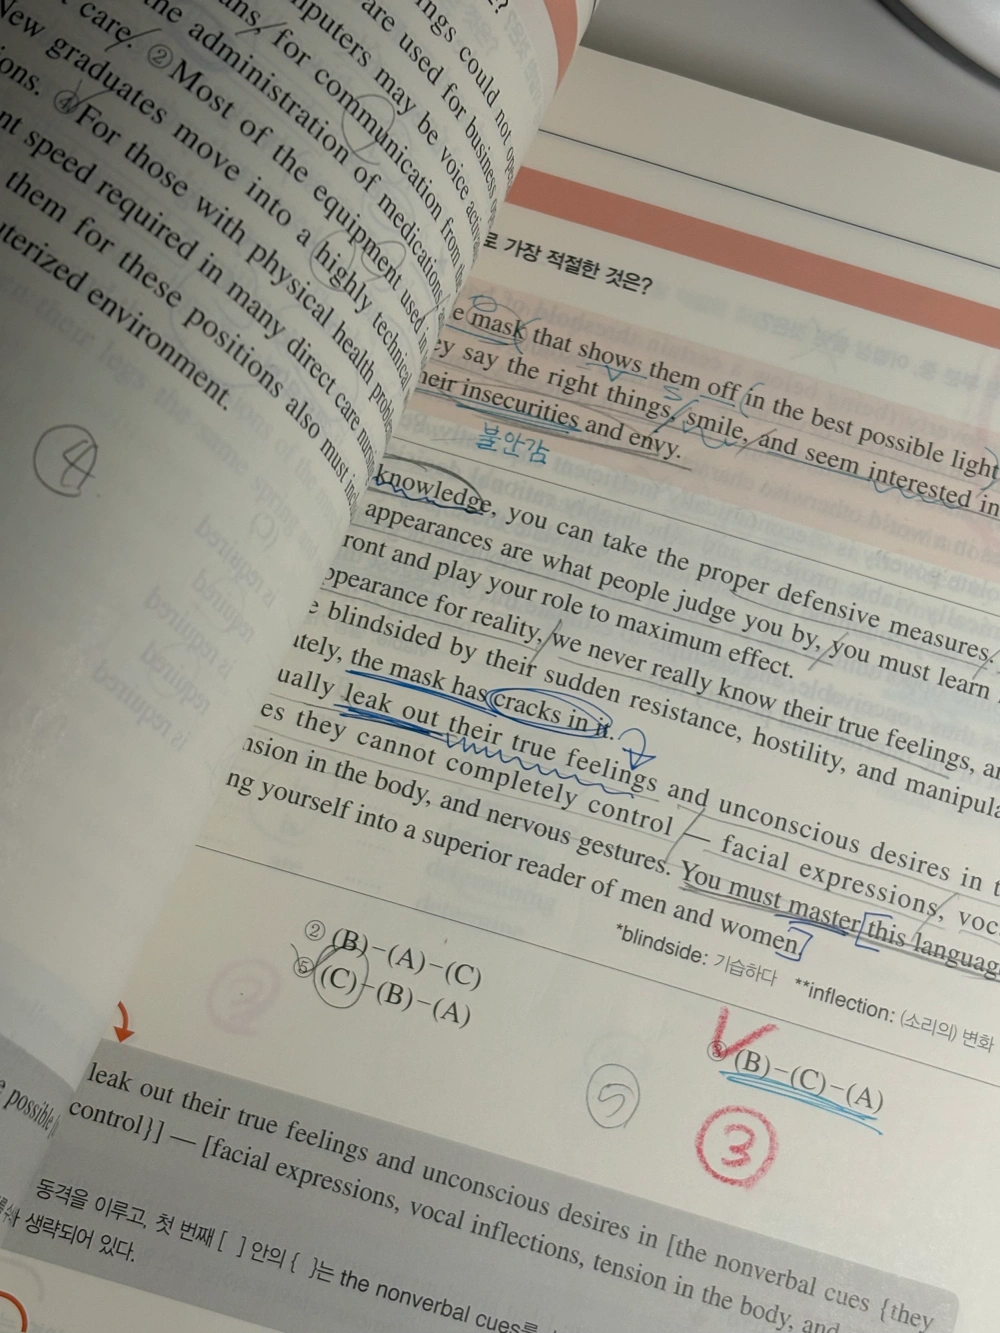 ings could not ope
are used for business o
mputers may be voice activ
ans, for communication from th
the administration of medications,
care. ② Most of the equipment used in
New graduates move into a highly technical
ons. ④ For those with physical health proble
nt speed required in many direct care nurs
them for these positions also must incl
uterized environment.
④
로 가장 적절한 것은?
e mask that shows them off in the best possible light
ey say the right things, smile, and seem interested in
heir insecurities and envy.
불안감
knowledge, you can take the proper defensive measures.
appearances are what people judge you by, you must learn
ront and play your role to maximum effect.
ppearance for reality, we never really know their true feelings, an
e blindsided by their sudden resistance, hostility, and manipula
ately, the mask has cracks in it.
ually leak out their true feelings and unconscious desires in t
es they cannot completely control — facial expressions, voc
nsion in the body, and nervous gestures. You must master this language
ng yourself into a superior reader of men and women.
*blindside: 기습하다 **inflection: (소리의) 변화
② (B)–(A)–(C)
③ (B)–(C)–(A)
⑤ (C)–(B)–(A)
⑤
③
leak out their true feelings and unconscious desires in [the nonverbal cues {they
control}] — [facial expressions, vocal inflections, tension in the body, and
동격을 이루고, 첫 번째 [ ] 안의 { }는 the nonverbal cues를
생략되어 있다.
e possible